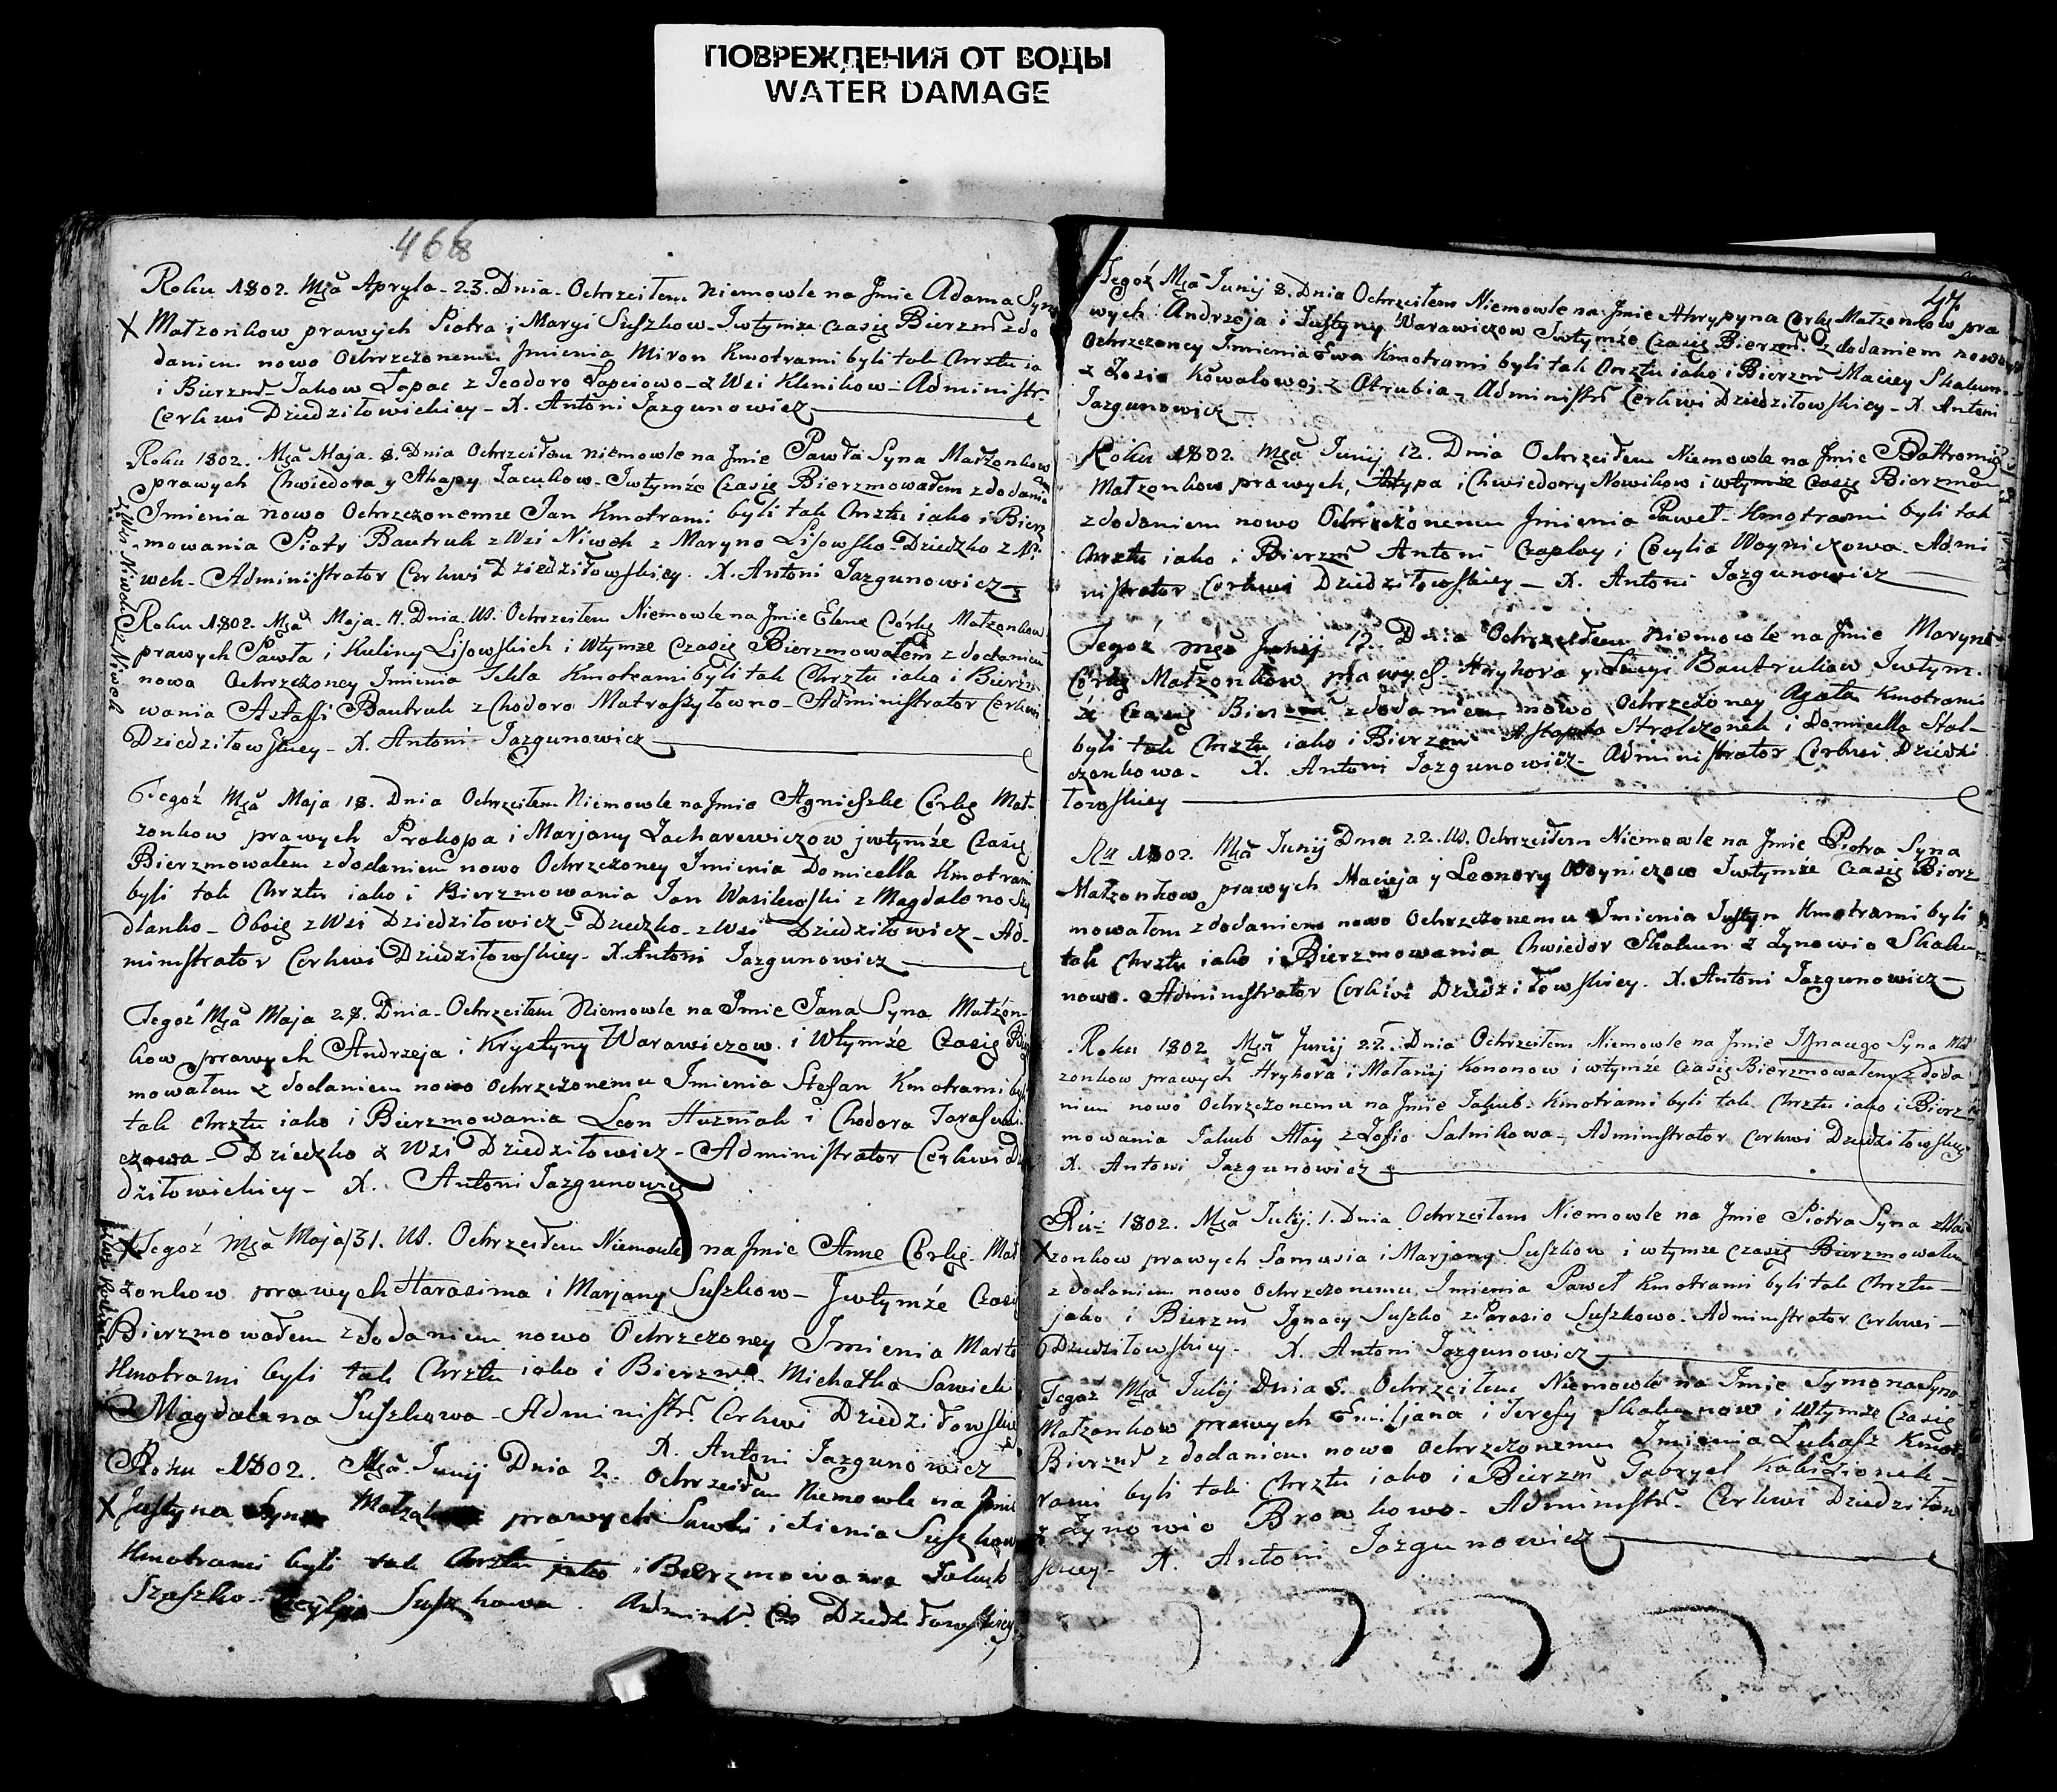 ПОВРЕЖДЕНИЯ ОТ ВОДЫ
WATER DAMAGE
466
Roku 1802. Mça Apryla. 23. Dnia. Ochrzciłem Niemowle na Jmie Adama Syna
X Małzonkow prawych Piotra i Maryi Suszkow. Jwtymze czasie Bierzm zdo
daniem nowo Ochrzczonemu Jmienia Miron Kmotrami byli tak Chrztu ja
i Bierzm Jakow Łapac z Teodoro Łapciowo z Wsi Klenikow Administr.
Cerkwi Dziedziłowickiey X. Antoni Jazgunowicz
Roku 1802. Mça Maja. 8. Dnia Ochrzciłem niemowle na Jmie Pawła Syna Małzonkow
prawych Chwiedora y Ahapy Jacukow Jwtymże Czasie Bierzmowałem z dodani
Jmienia nowo Ochrzczonemu Jan Kmotrami byli tak Chrztu iako i Bierz
mowania Piotr Bautruk z Wsi Niwek z Maryno Lisowsko Dziedzko z Ni
wek. Administrator Cerkwi Dziedziłowskiey. X. Antoni Jazgunowicz
Roku 1802. Mça Maja. 11. Dnia. Ochrzciłem Niemowle na Jmie Elene Córkę Małzonkow
prawych Pawła i Kuliny Lisowskich i Wtymze Czasie Bierzmowałem z dodaniem
nowo Ochrzczoney Jmienia Tekla Kmotrami byli tak Chrztu iako i Bierzm
wania Astafi Bautruk z Chodoro Matraszyłowno Administrator Cerkwi
Dziedziłowskiey X. Antoni Jazgunowicz
Tegoż Mça Maja 18. Dnia Ochrzciłem Niemowle na Jmie Agnieszke Córkę Mał
żonkow prawych Prokopa i Marjany Zacharewiczow jwtymże Czasie
Bierzmowałem z dodaniem nowo Ochrzczoney Jmienia Domicella Kmotrami
byli tak Chrztu iako i Bierzmowania Jan Wasilewski z Magdaleno
dlanko Oboie z Wsi Dziedziłowicz Dziedzko z Wsi Dziedziłowicz Ad
ministrator Cerkwi Dziedziłowskiey X. Antoni Jazgunowicz
Tegoż Mça Maja 28. Dnia. Ochrzciłem Niemowle na Jmie Jana Syna Małżon
kow prawych Andrzeja i Krystyny Warawiczow i Wtymże Czasie
mowałem z dodaniem nowo ochrzczonemu Jmienia Stefan Kmotrami
tak chrztu iako i Bierzmowania Leon Huzniak i Chodora Tarasewi
czowa Dziedzko z Wsi Dziedziłowicz Administrator Cerkwi
dziłowickiey X. Antoni Jazgunowicz
X Tegoż Mça Maja 31. Ochrzciłem Niemowle na Jmie Anne Córkę. Mał
żonkow prawych Harasima i Marjany Suszkow Jwtymże Czasie
Bierzmowałem z dodaniem nowo Ochrzczoney Jmienia Marta
Kmotrami byli tak Chrztu iako i Bierzm. Michałka Sawicki
Magdalena Suszkowa Administr. Cerkwi Dziedziłowskiey
X. Antoni Jazgunowicz
Roku 1802. Mça Junij Dnia 2. Ochrzciłem Niemowle na Jmie
X Justyna Syna prawych Sawki i Xienia Suszkow
Kmotrami byli tak Chrztu jako i Bierzmowania Jakub
Szaszko Suszkowa. Administ. Dziedziłowskiey
47
Tegoż Mça Junij 8. Dnia Ochrzciłem Niemowle na Jmie Ahrypyna Corkę Małzonkow pra
wych Andrzeja i Justyny Warawiczow Jwtymże Czasie Bierzm. z dodaniem nowo
Ochrzczoney Jmienia Ewa Kmotrami byli tak Chrztu iako i Bierzm Maciey Skakun
z Zosio Kowalowo z Otrubia Administr Cerkwi Dziedziłowskiey X. Antoni
Jazgunowicz
Roku 1802 Mça Junij 12. Dnia Ochrzciłem Niemowle na Jmie
Małzonkow prawych, i Chwiedory Nowikow i wtymże Czasie Bierzmo
z dodaniem nowo Ochrzczonemu Jmienia Paweł Kmotrami byli tak
Chrztu iako i Bierzm Antoni Czapkoy i Cecylia Woyniczowa. Admi
nistrator Cerkwi Dziedziłowskiey X. Antoni Jazgunowicz
Tegoż Mça Junij 17. Dnia Ochrzciłem Niemowle na Jmie Maryne
Córkę Małżonkow prawych. Hryhora y Bautrukow Jwtym
ze Czasie Bierzm z dodaniem nowo Ochrzczoney Agata Kmotrami
byli tak Chrztu iako i Bierzm i Domicella Stol
czonkowa. X. Antoni Jazgunowicz Administrator Cerkwi Dziedzi
łowskiey
Ru 1802. Mça Junij Dnia 22. Ochrzciłem Niemowle na Jmie Piotra Syna
Małzonkow prawych Macieja y Leonory Woyniczow Jwtymże Czasie Bierz
mowałem z dodaniem nowo Ochrzczonemu Jmienia Justyn Kmotrami byli
tak Chrztu iako i Bierzmowania Chwiedor Skakun z Zynowio Skaku
nowo. Administrator Cerkwi Dziedziłowskiey. X. Antoni Jazgunowicz
Roku 1802 Mça Junij 22. Dnia Ochrzciłem Niemowle na Jmie Ignacego Syna Mał
zonkow prawych Hryhora i Małanij Kononow i wtymże czasie Bierzmowałem z doda
niem nowo Ochrzczonemu na Jmie Jakub. Kmotrami byli tak Chrztu iako i Bierz
mowania Jakub z Zofio Salnikowa Administrator Cerkwi Dziedziłowskiey
X. Antoni Jazgunowicz
Ru 1802. Mça Julij. 1. Dnia Ochrzciłem Niemowle na Jmie Piotra Syna Mał
X zonkow prawych Samusia i Marjany Suszkow i wtymze czasie Bierzmowałem
z dodaniem nowo Ochrzczonemu Jmienia Paweł Kmotrami byli tak Chrztu
jako i Bierzm Ignacy Suszko z Parasio Suszkowo. Administrator cerkwi
Dziedziłowskiey X. Antoni Jazgunowicz
Tegoż Mça Julij Dnia 8. Ochrzciłem Niemowle na Jmie Symona Syna
Małzonkow prawych Emiljana i Teresy Skakunow i Wtymże Czasie
Bierzm z dodaniem nowo ochrzczonemu Jmienia Łukasz Kmot
rami byli tak Chrztu iako i Bierzm Gabryel
z Zynowio Browkowo. Administr. Cerkwi Dziedziłow
skiey X. Antoni Jazgunowicz